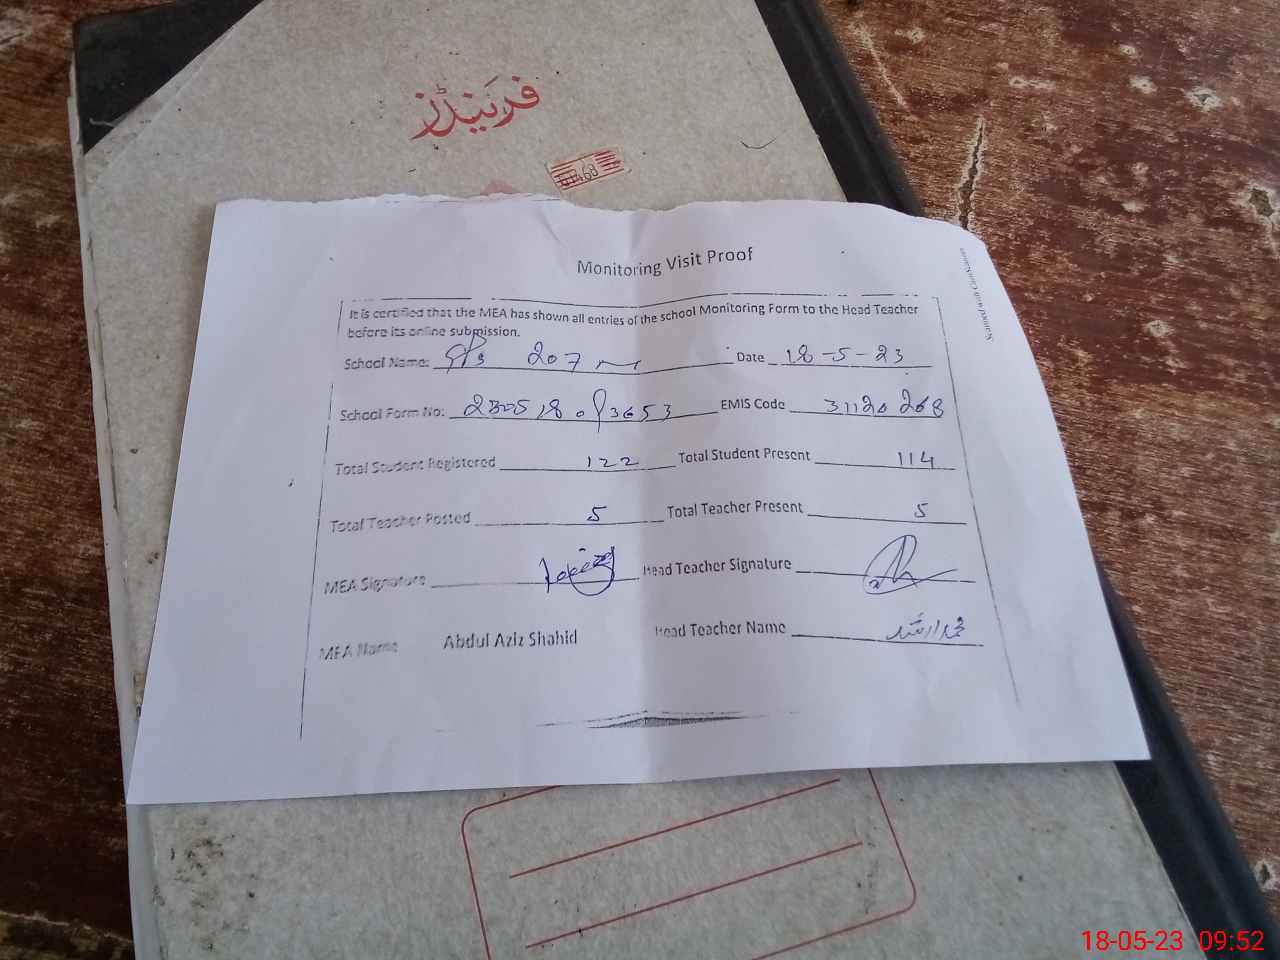 فرینڈز
468
Monitoring Visit Proof
It is certified that the MEA has shown all entries of the school Monitoring Form to the Head Teacher
before its online submission.
School Name: GPS 207 Date 18-5-23
School Form No: EMIS Code 31120268
Total Student Registered 122 Total Student Present 114
Total Teacher Posted 5 Total Teacher Present 5
MEA Signature Head Teacher Signature
MEA Name Abdul Aziz Shahid Head Teacher Name محمد ارشد
Scanned with CamScanner
18-05-23 09:52